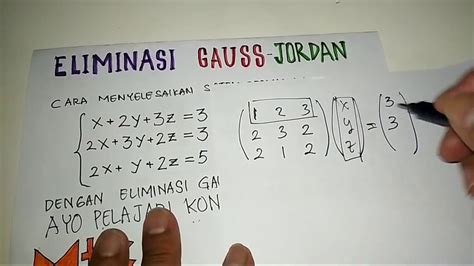 ELIMINASI GAUSS-JORDAN
CARA MENYELESAIKAN
x + 2y + 3z = 3
2x + 3y + 2z = 3
2x + y + 2z = 5
( 1 2 3 ) ( x ) = ( 3
2 3 2 y 3
2 1 2 z
DENGAN ELIMINASI GA
AYO PELAJARI KON